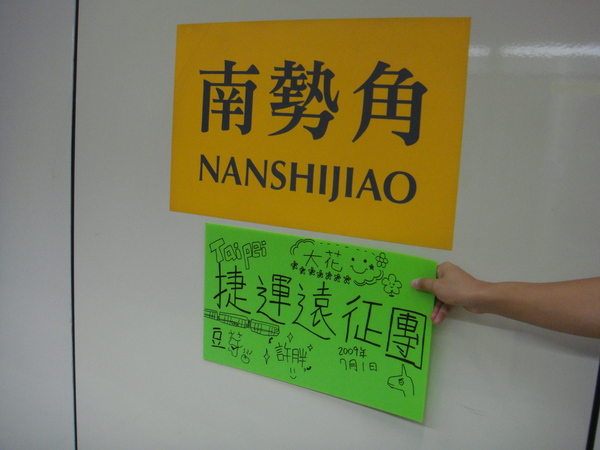 南勢角
NANSHIJIAO
Taipei
大花
捷運遠征團
豆芽
許胖
2009年
7月1日